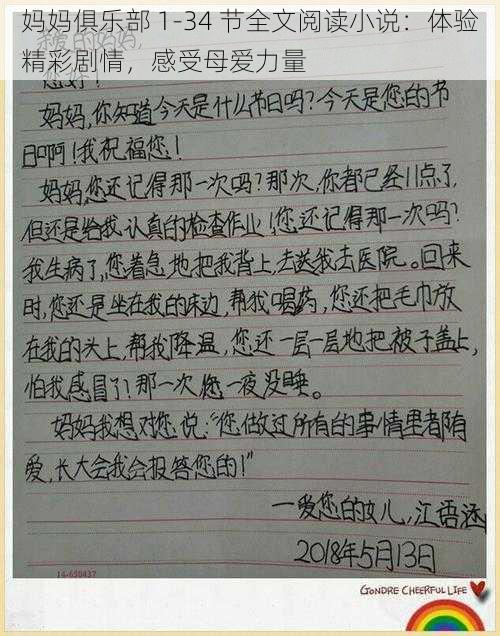 妈妈俱乐部 1-34 节全文阅读小说：体验
精彩剧情，感受母爱力量
您好！
妈妈,你知道今天是什么节日吗?今天是您的节
日啊!我祝福您!
妈妈,您还记得那一次吗?那次,你都已经11点了,
但还是给我认真的检查作业!您还记得那一次吗?
我生病了,您着急地把我背上,去送我去医院。回来
时,您还是坐在我的床边,帮我喝药,您还把毛巾放
在我的头上,帮我降温,您还一层一层地把被子盖上,
怕我感冒了!那一次您一夜没睡。
妈妈我想对您说:"您做过所有的事情里都有
爱,长大会我会报答您的!"
一爱您的女儿,江语涵
2018年5月13日
14-650437
GONDRE CHEERFUL LIFE